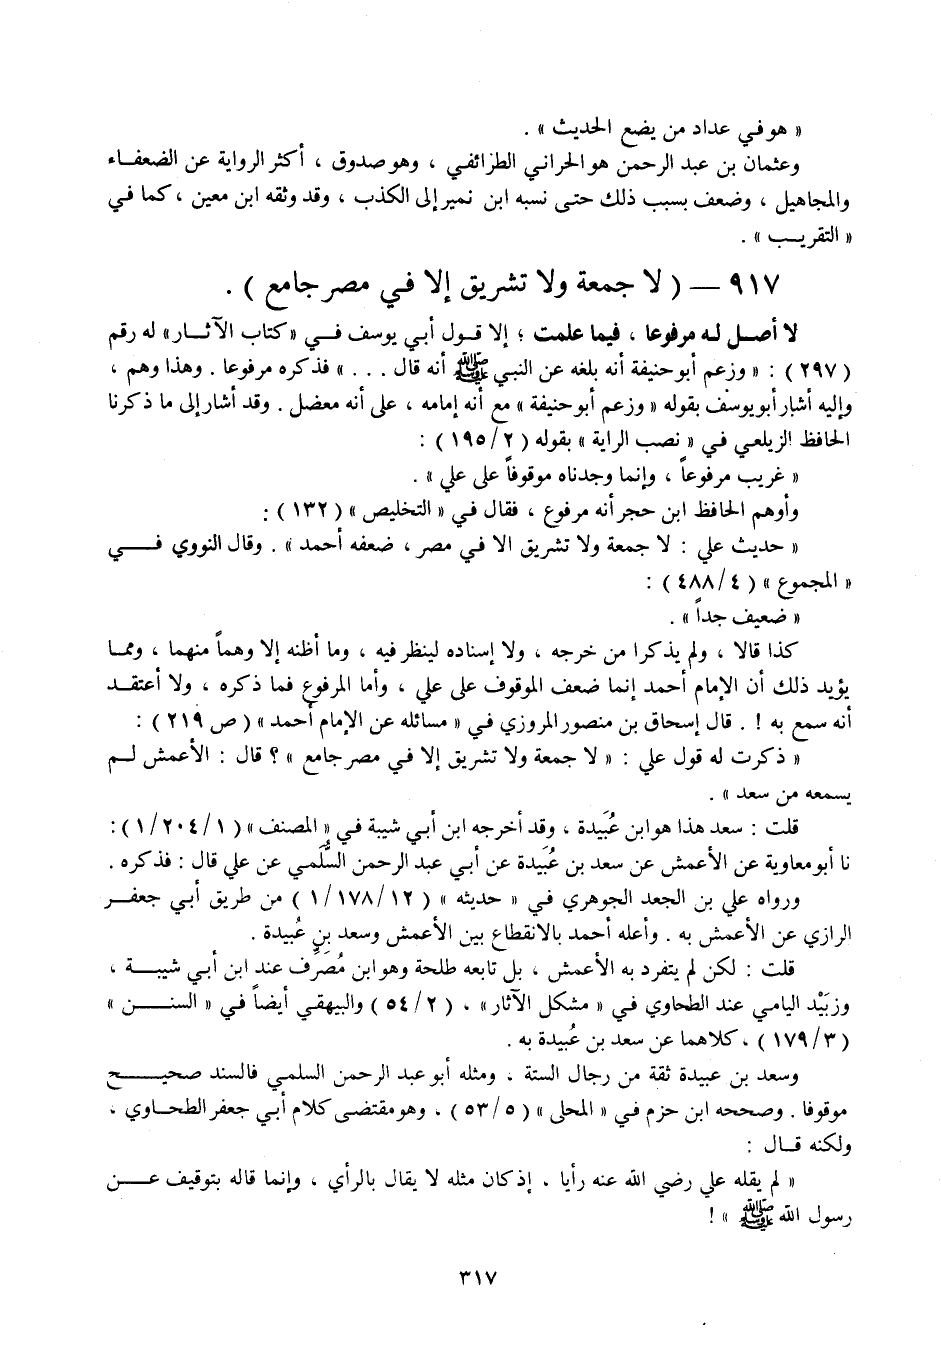 « هو في عداد من يضع الحديث » .
وعثمان بن عبد الرحمن هو الحراني الطرائفي ، وهو صدوق ، أكثر الرواية عن الضعفاء
والمجاهيل ، وضعف بسبب ذلك حتى نسبه ابن نمير إلى الكذب ، وقد وثقه ابن معين ، كما في
« التقريب » .
٩١٧ – ( لا جمعة ولا تشريق إلا في مصر جامع ) .
لا أصل له مرفوعا ، فيما علمت ؛ إلا قول أبي يوسف في « كتاب الآثار » له رقم
( ٢٩٧ ) : « وزعم أبو حنيفة أنه بلغه عن النبي ﷺ أنه قال . . . » فذكره مرفوعا . وهذا وهم ،
وإليه أشار أبو يوسف بقوله « وزعم أبو حنيفة » مع أنه إمامه ، على أنه معضل . وقد أشار إلى ما ذكرنا
الحافظ الزيلعي في « نصب الراية » بقوله ( ٢/ ١٩٥ ) :
« غريب مرفوعاً ، وإنما وجدناه موقوفاً على علي » .
وأوهم الحافظ ابن حجر أنه مرفوع ، فقال في « التخليص » ( ١٣٢ ) :
« حديث علي : لا جمعة ولا تشريق الا في مصر ، ضعفه أحمد » . وقال النووي في
« المجموع » ( ٤/ ٤٨٨ ) :
« ضعيف جداً » .
كذا قالا ، ولم يذكرا من خرجه ، ولا إسناده لينظر فيه ، وما أظنه إلا وهماً منهما ، ومما
يؤيد ذلك أن الإمام أحمد إنما ضعف الموقوف على علي ، وأما المرفوع فما ذكره ، ولا أعتقد
أنه سمع به ! . قال إسحاق بن منصور المروزي في « مسائله عن الإمام أحمد » ( ص ٢١٩ ) :
« ذكرت له قول علي : « لا جمعة ولا تشريق إلا في مصر جامع » ؟ قال : الأعمش لم
يسمعه من سعد » .
قلت : سعد هذا هو ابن عُبَيدة ، وقد أخرجه ابن أبي شيبة في « المصنف » ( ١/ ٢٠٤/ ١ ) :
نا أبو معاوية عن الأعمش عن سعد بن عُبَيدة عن أبي عبد الرحمن السُّلَمي عن علي قال : فذكره .
ورواه علي بن الجعد الجوهري في « حديثه » ( ١٢/ ١٧٨/ ١ ) من طريق أبي جعفر
الرازي عن الأعمش به . وأعله أحمد بالانقطاع بين الأعمش وسعد بن عُبيدة .
قلت : لكن لم يتفرد به الأعمش ، بل تابعه طلحة وهو ابن مُصَرِّف عند ابن أبي شيبة ،
وزبَيْد اليامي عند الطحاوي في « مشكل الآثار » ، ( ٢/ ٥٤ ) والبيهقي أيضاً في « السنن »
( ٣/ ١٧٩ ) ، كلاهما عن سعد بن عُبيدة به .
وسعد بن عبيدة ثقة من رجال الستة ، ومثله أبو عبد الرحمن السلمي فالسند صحيح
موقوفا . وصححه ابن حزم في « المحلى » ( ٥/ ٥٣ ) ، وهو مقتضى كلام أبي جعفر الطحاوي ،
ولكنه قال :
« لم يقله علي رضي الله عنه رأيا ، إذ كان مثله لا يقال بالرأي ، وإنما قاله بتوقيف عن
رسول الله ﷺ » !
٣١٧